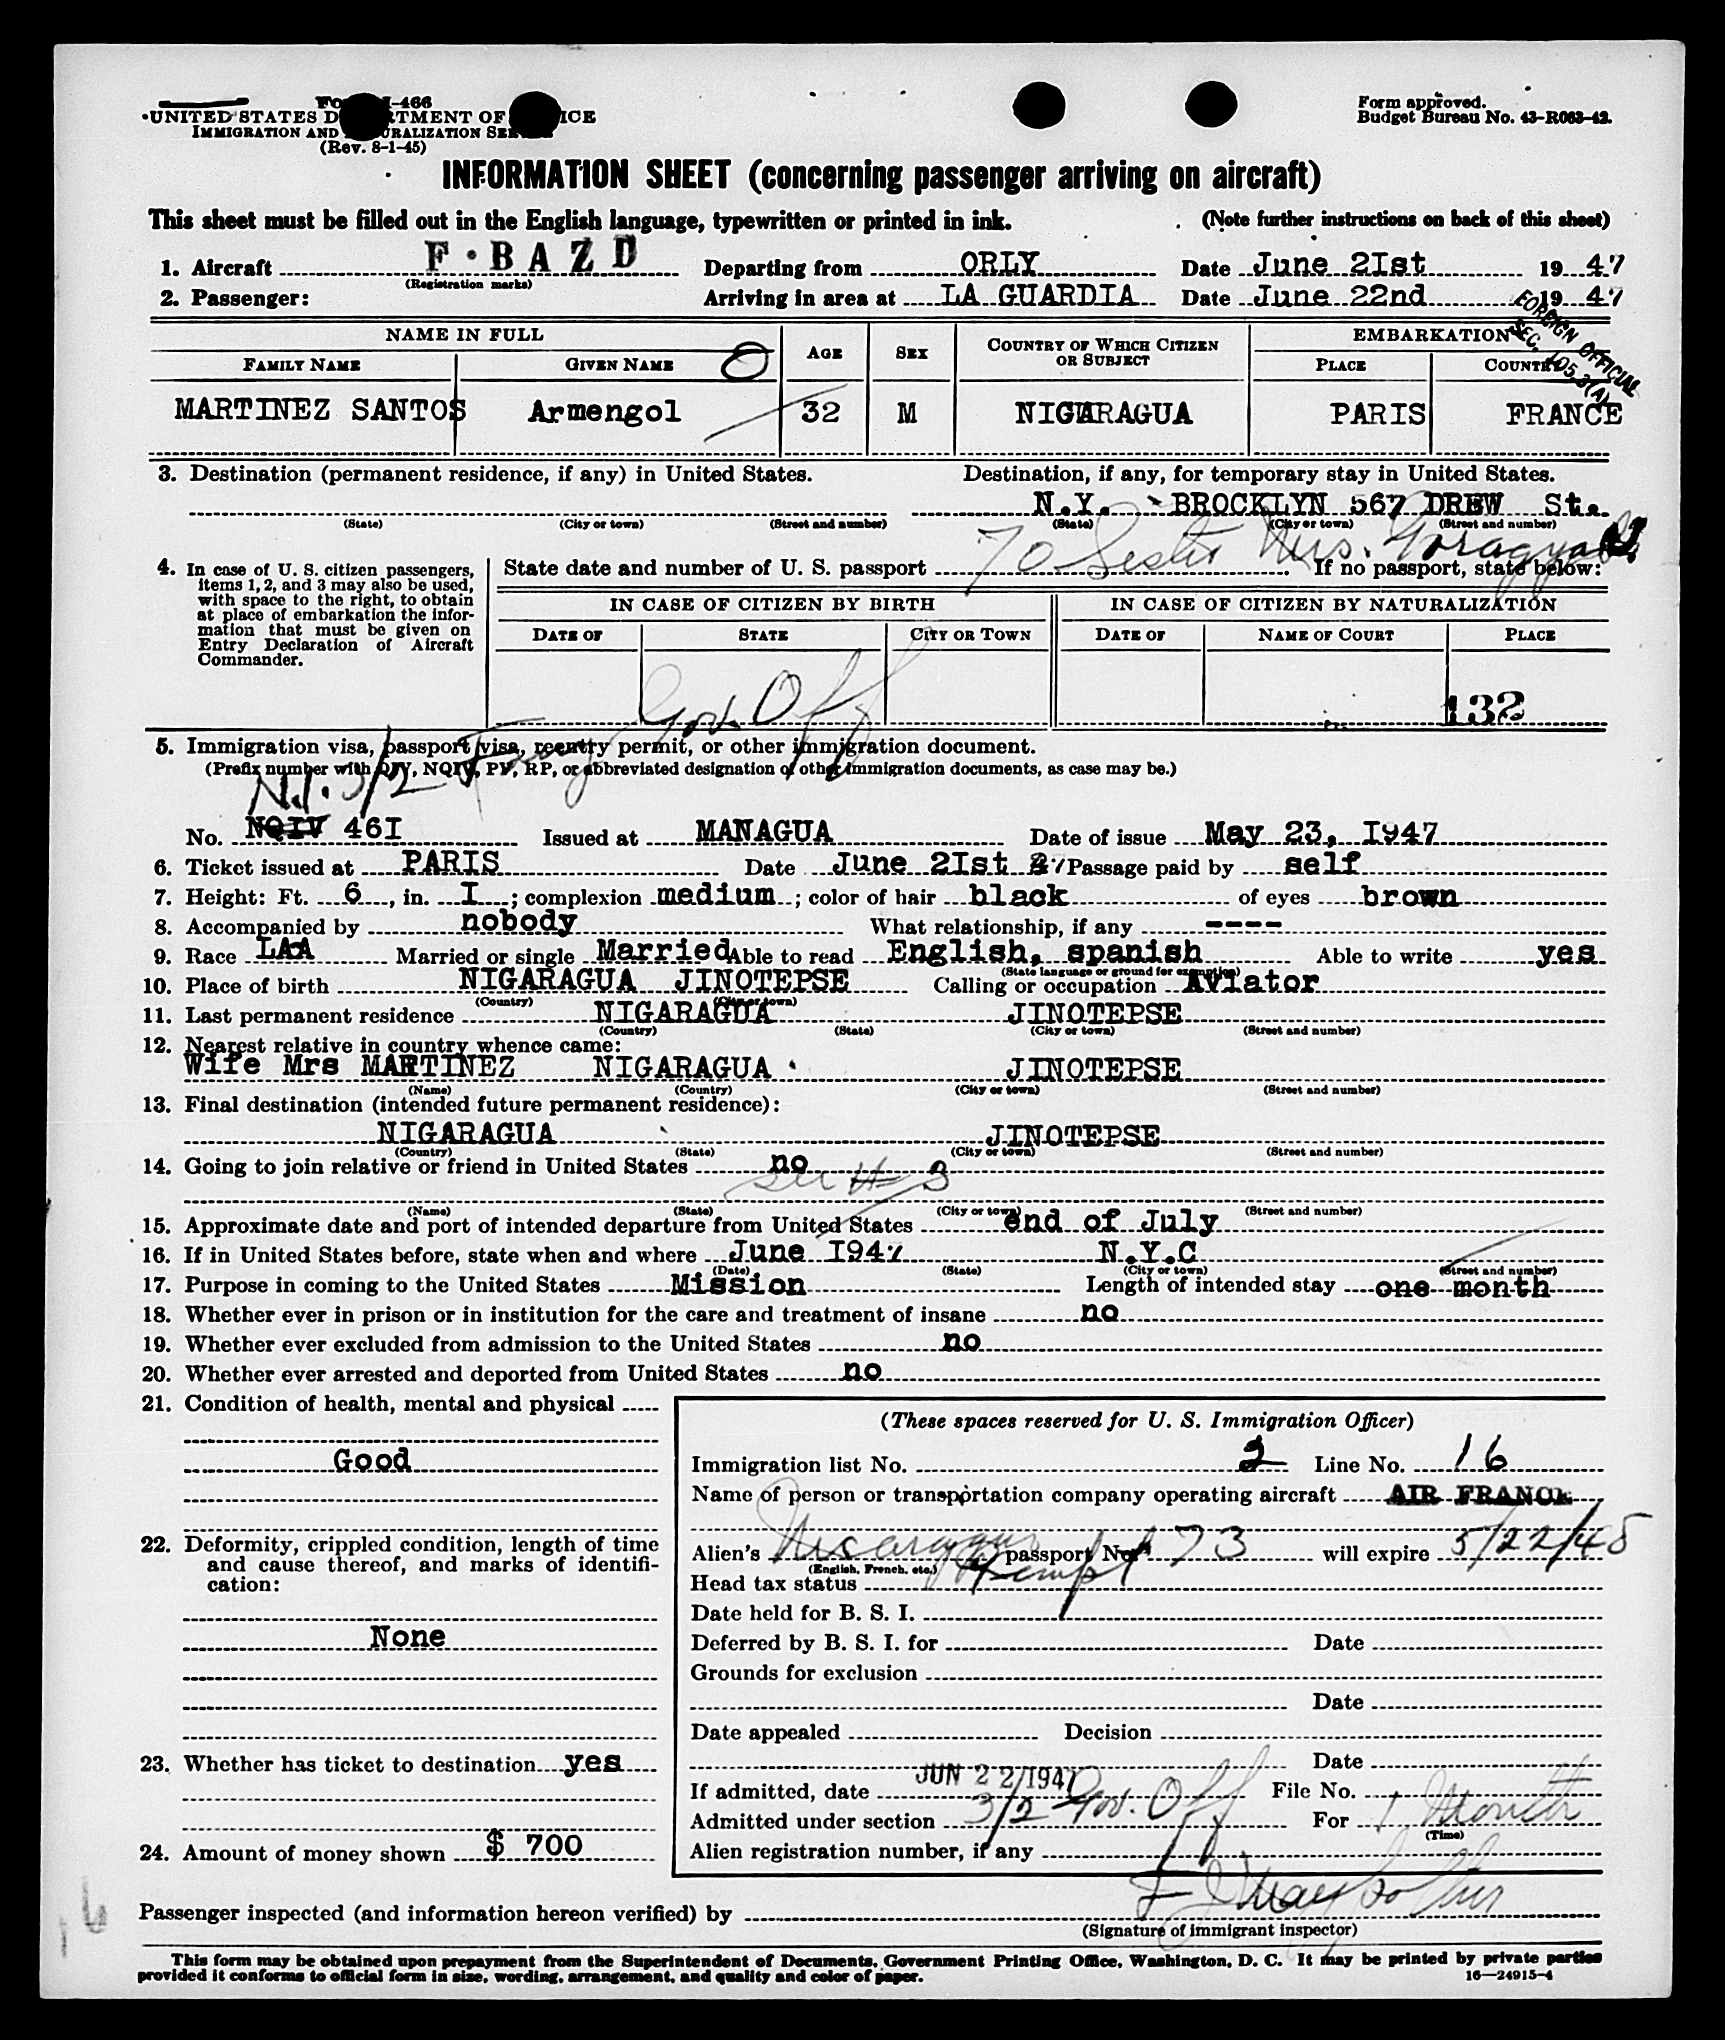 Form I-466
UNITED STATES DEPARTMENT OF JUSTICE
IMMIGRATION AND NATURALIZATION SERVICE
(Rev. 8-1-45)
Form approved.
Budget Bureau No. 43-R063-42.
INFORMATION SHEET (concerning passenger arriving on aircraft)
This sheet must be filled out in the English language, typewritten or printed in ink.
(Note further instructions on back of this sheet)
1. Aircraft F·BAZD Departing from ORLY Date June 2Ist 19 47
(Registration marks)
2. Passenger: Arriving in area at LA GUARDIA Date June 22nd 19 47
FOREIGN OFFICIAL
SEC. 105.3(A)
NAME IN FULL
FAMILY NAME GIVEN NAME O AGE SEX COUNTRY OF WHICH CITIZEN OR SUBJECT EMBARKATION PLACE COUNTRY
MARTINEZ SANTOS Armengol 32 M NIGARAGUA PARIS FRANCE
3. Destination (permanent residence, if any) in United States. Destination, if any, for temporary stay in United States.
N.Y. BROCKLYN 567 DREW St.
(State) (City or town) (Street and number) (State) (City or town) (Street and number)
To Sister Mrs.
4. In case of U. S. citizen passengers, items 1, 2, and 3 may also be used, with space to the right, to obtain at place of embarkation the information that must be given on Entry Declaration of Aircraft Commander.
State date and number of U. S. passport If no passport, state below:
IN CASE OF CITIZEN BY BIRTH IN CASE OF CITIZEN BY NATURALIZATION
DATE OF STATE CITY OR TOWN DATE OF NAME OF COURT PLACE
132
Gov. Off
5. Immigration visa, passport visa, reentry permit, or other immigration document.
(Prefix number with QIV, NQIV, PV, RP, or abbreviated designation of other immigration documents, as case may be.)
N.I. 3/2
No. NQIV 46I Issued at MANAGUA Date of issue May 23, I947
6. Ticket issued at PARIS Date June 2Ist 47 Passage paid by self
7. Height: Ft. 6, in. I; complexion medium; color of hair black of eyes brown
8. Accompanied by nobody What relationship, if any ----
9. Race LAA Married or single Married Able to read English, spanish Able to write yes
(State language or ground for exemption)
10. Place of birth NIGARAGUA JINOTEPSE Calling or occupation Aviator
(Country) (City or town)
11. Last permanent residence NIGARAGUA JINOTEPSE
(Country) (State) (City or town) (Street and number)
12. Nearest relative in country whence came:
Wife Mrs MARTINEZ NIGARAGUA JINOTEPSE
(Name) (Country) (City or town) (Street and number)
13. Final destination (intended future permanent residence):
NIGARAGUA JINOTEPSE
(Country) (State) (City or town) (Street and number)
14. Going to join relative or friend in United States no
See # 3
(Name) (State) (City or town) (Street and number)
15. Approximate date and port of intended departure from United States end of July
16. If in United States before, state when and where June I947 N.Y.C
(Date) (State) (City or town) (Street and number)
17. Purpose in coming to the United States Mission Length of intended stay one month
18. Whether ever in prison or in institution for the care and treatment of insane no
19. Whether ever excluded from admission to the United States no
20. Whether ever arrested and deported from United States no
21. Condition of health, mental and physical
Good
22. Deformity, crippled condition, length of time and cause thereof, and marks of identification:
None
23. Whether has ticket to destination yes
24. Amount of money shown $ 700
(These spaces reserved for U. S. Immigration Officer)
Immigration list No. 2 Line No. 16
Name of person or transportation company operating aircraft AIR FRANCE
Alien's Nicaragua passport No. 73 will expire 5/22/48
(English, French, etc.)
Head tax status Exempt
Date held for B. S. I.
Deferred by B. S. I. for Date
Grounds for exclusion
Date
Date appealed Decision
Date
If admitted, date JUN 22 1947 File No.
Admitted under section 3/2 Gov. Off For 1 Month
(Time)
Alien registration number, if any
Passenger inspected (and information hereon verified) by
(Signature of immigrant inspector)
16
This form may be obtained upon prepayment from the Superintendent of Documents, Government Printing Office, Washington, D. C. It may be printed by private parties
provided it conforms to official form in size, wording, arrangement, and quality and color of paper.
16—24915-4